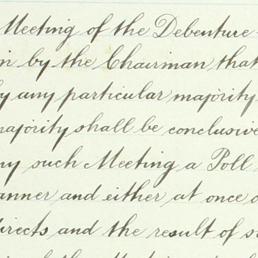 Meeting of the Debenture-
in by the Chairman that
by any particular majority
majority shall be conclusive
ny such Meeting a Poll
anner and either at once o
irects and the result of s